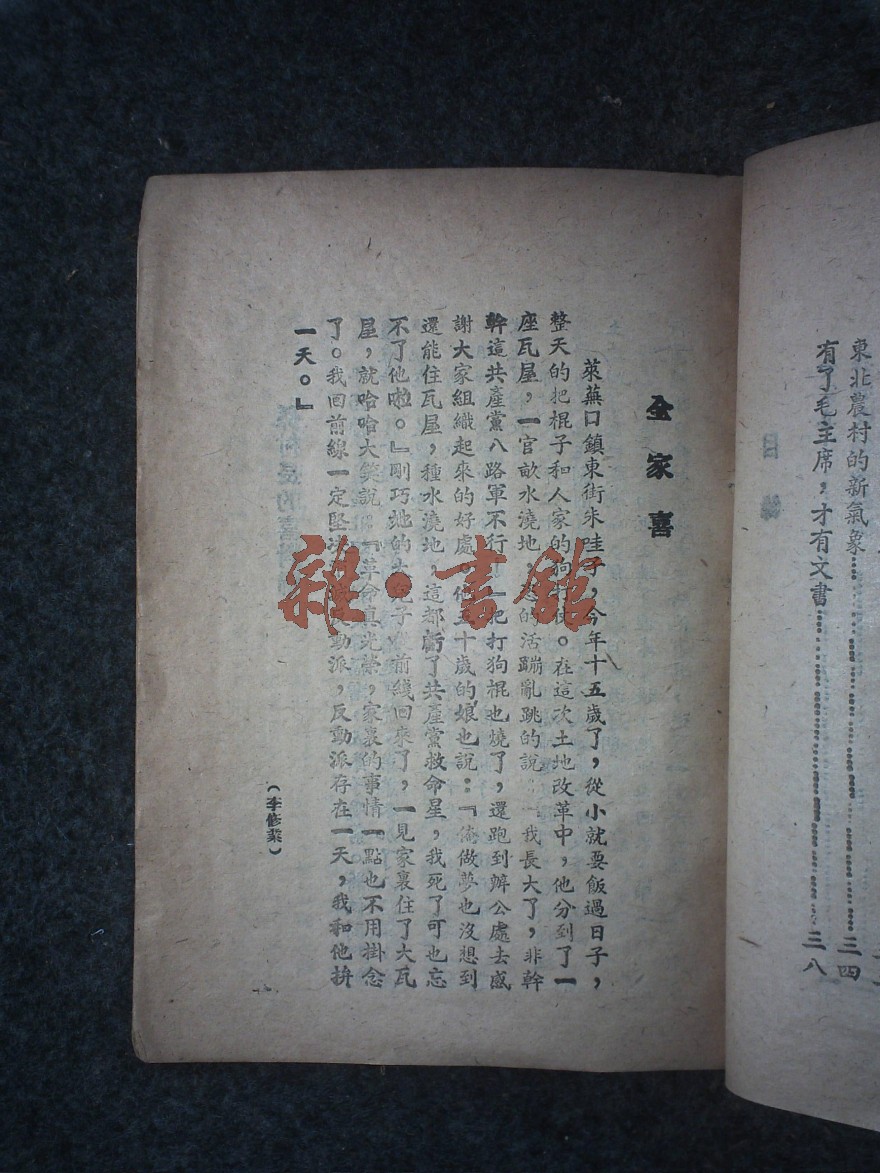 東北農村的新氣象……三四
有了毛主席，才有文書……三八
全家喜
萊蕪口鎮東街朱哇子，今年十五歲了，從小就要飯過日子，
整天的把棍子和人家的狗打仗。在這次土地改革中，他分到了一
座瓦屋，一官畝水澆地，的活蹦亂跳的說：我長大了，非幹
幹這共產黨八路軍不行！一把打狗棍也燒了，還跑到辦公處去感
謝大家組織起來的好處。他五十歲的娘也說：『俺做夢也沒想到
還能住瓦屋，種水澆地，這都虧了共產黨救命星，我死了可也忘
不了他啦。』剛巧她的大兒子從前綫回來了，一見家裏住了大瓦
屋，就哈哈大笑說：『革命真光榮，家裏的事情一點也不用掛念
了。我回前線一定堅決動派，反動派存在一天，我和他拚
一天。』
（李修業）
雜·書館